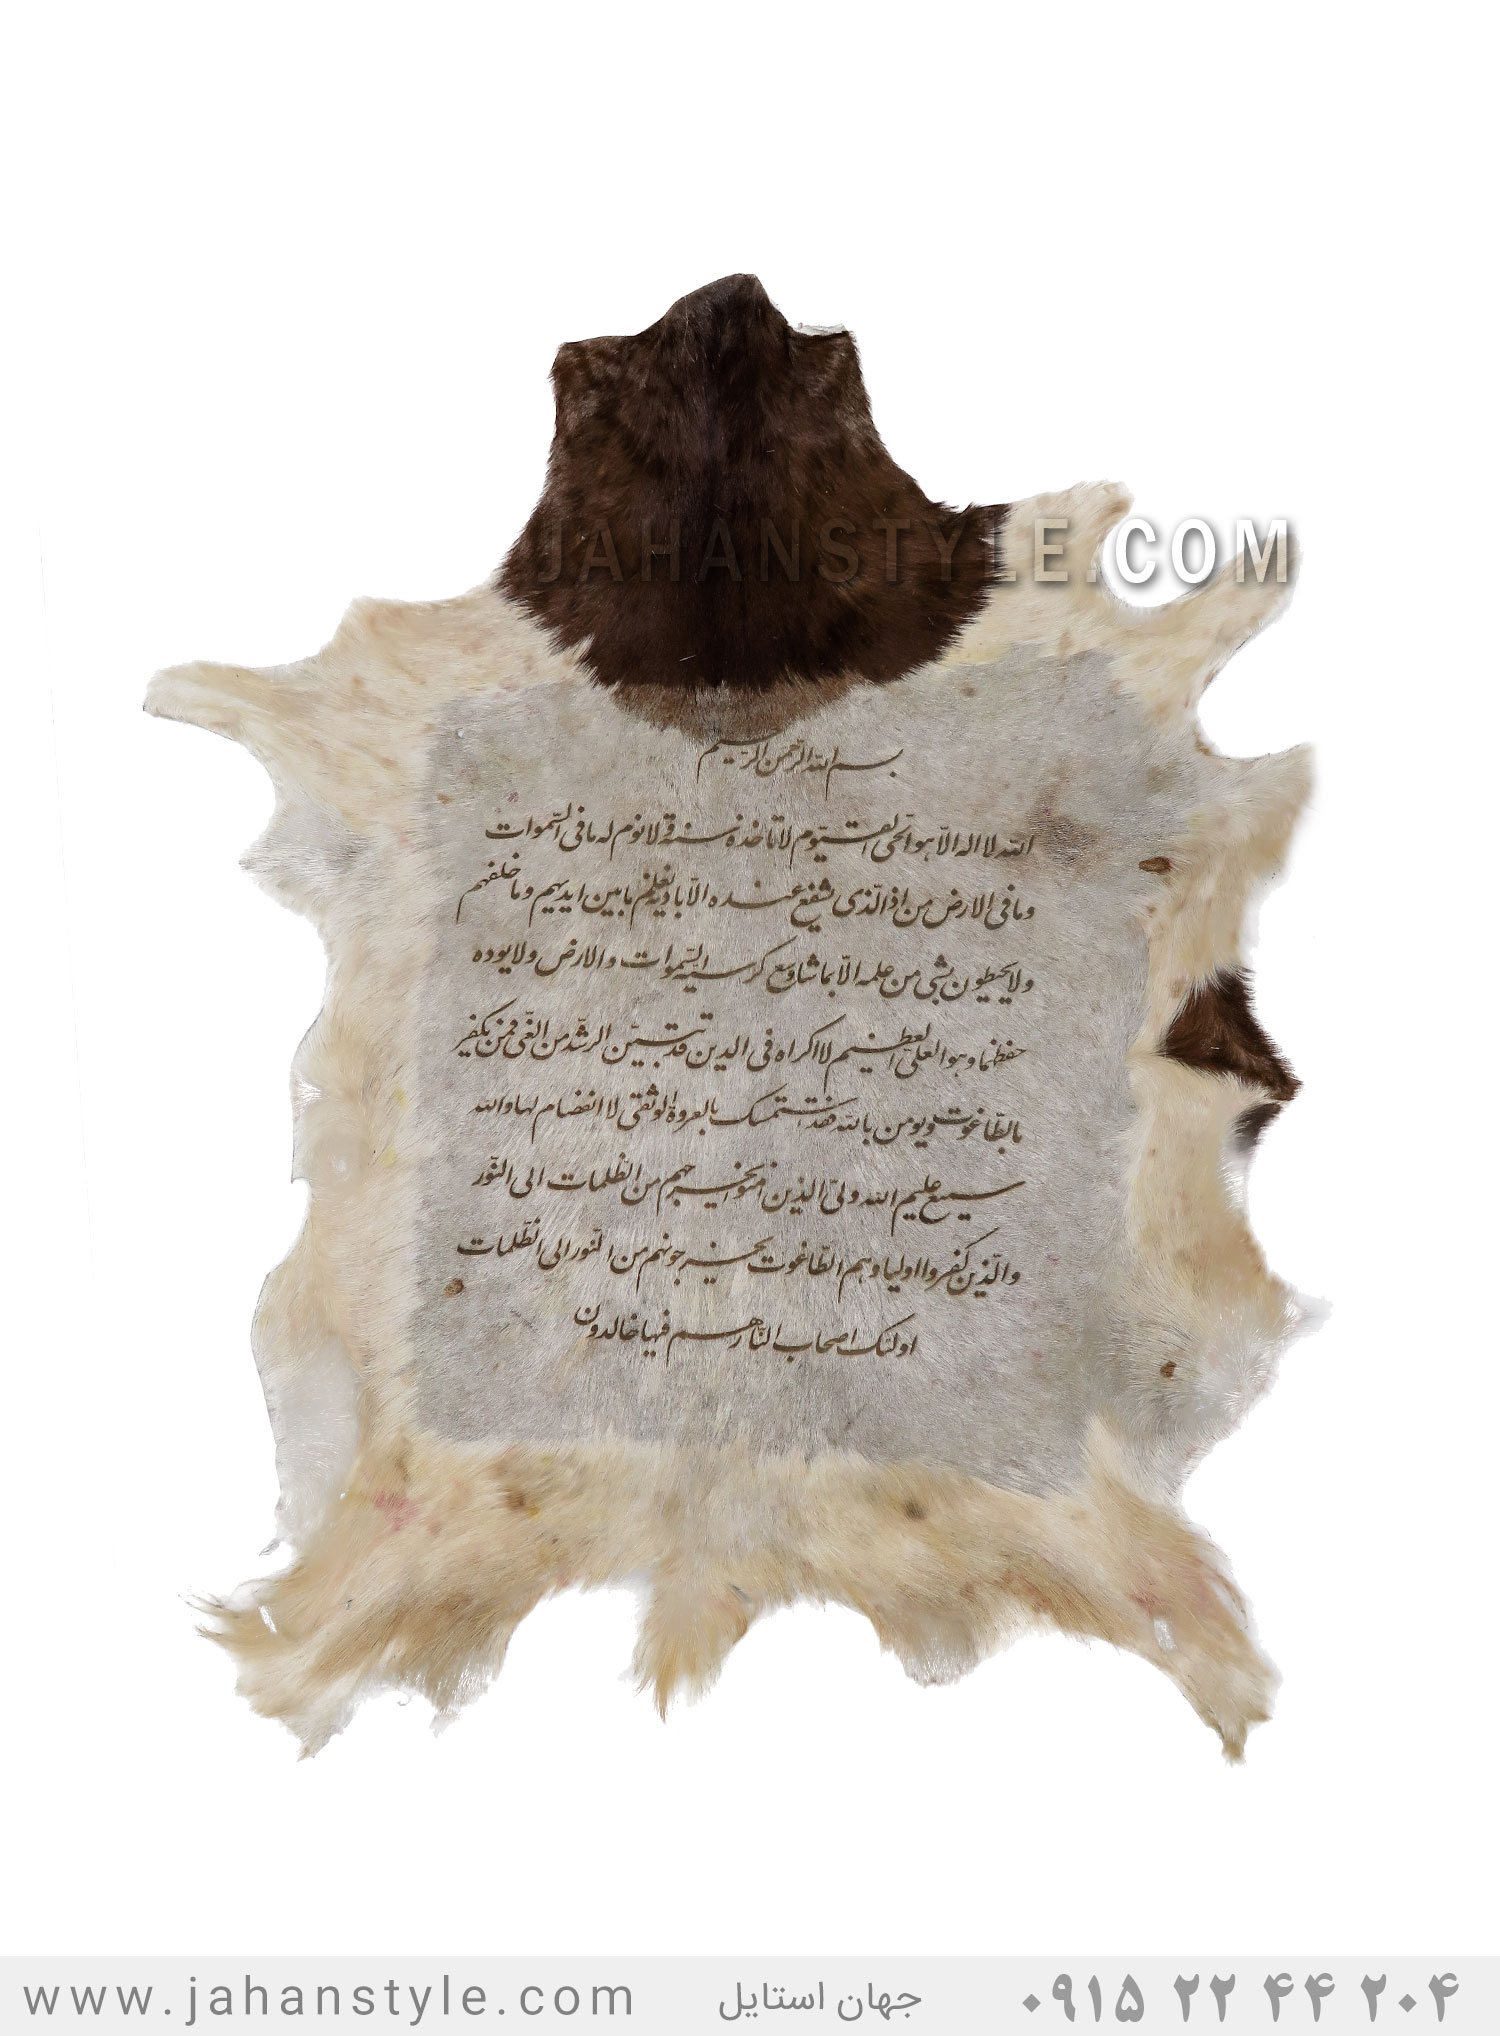 JAHANSTYLE.COM
بسم الله الرحمن الرحیم
الله لا اله الا هو الحی القیوم لا تاخذه سنة و لا نوم له ما فی السموات
و ما فی الارض من اذالذی یشفع عنده الا باذنه یعلم ما بین ایدیهم و ما خلفهم
و لا یحیطون بشی من علمه الا بما شا وسع کرسیه السموات و الارض و لا یوده
حفظهما و هو العلی العظیم لا اکراه فی الدین قد تبین الرشد من الغی فمن یکفر
بالطاغوت و یومن بالله فقد استمسک بالعروة الوثقی لا انفصام لها و الله
سمیع علیم الله ولی الذین امنوا یخرجهم من الظلمات الی النور
و الذین کفروا اولیاوهم الطاغوت یخرجونهم من النور الی الظلمات
اولئک اصحاب النار هم فیها خالدون
www.jahanstyle.com جهان استایل ۰۹۱۵ ۲۲ ۴۴ ۲۰۴